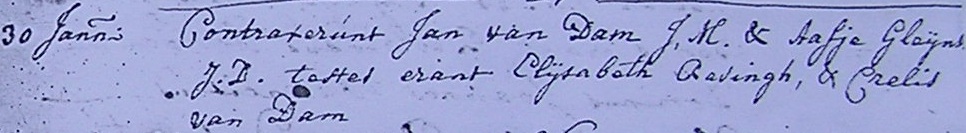 30 Janñi Contraxerúnt Jan van Dam J. M. & Aafje Gleÿns,
J. D. testes erant Elÿsabeth Resingh, & Crelis
van Dam